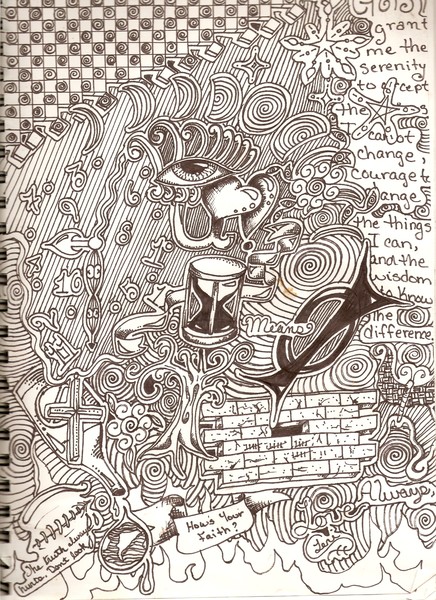 God,
grant
me the
serenity
to accept
the
I cannot
change,
courage to
change
the things
I can,
and the
wisdom
to know
the
difference.
Means
How's Your
Faith?
Love
Always,
The truth always
hurts, Dont look!